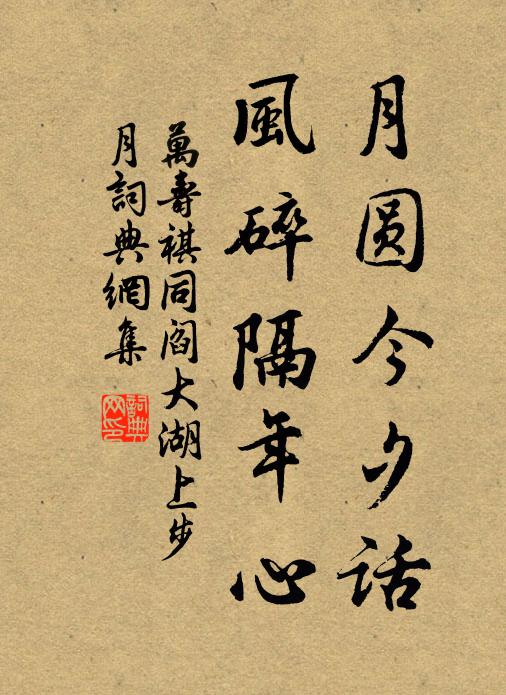 月圓今夕話
風碎隔年心
萬壽祺同閻大湖上步
月詞典網集
詞典
网印